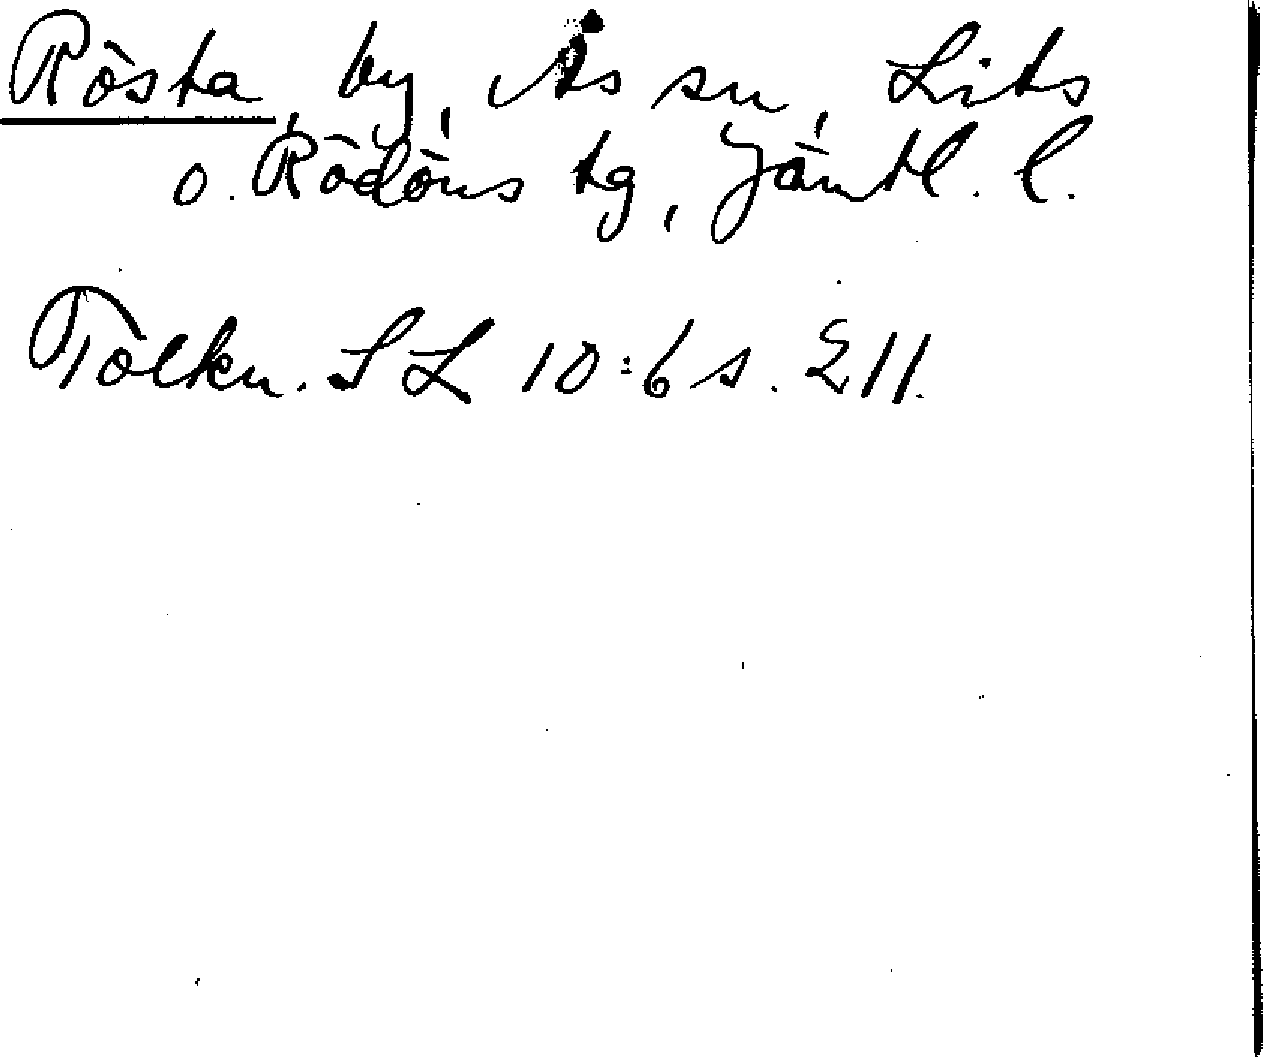 Rösta, by, Ås sn, Lits
o. Rödöns tg, Jämtl. l.
Tolkn. SL 10:6 s. 211.